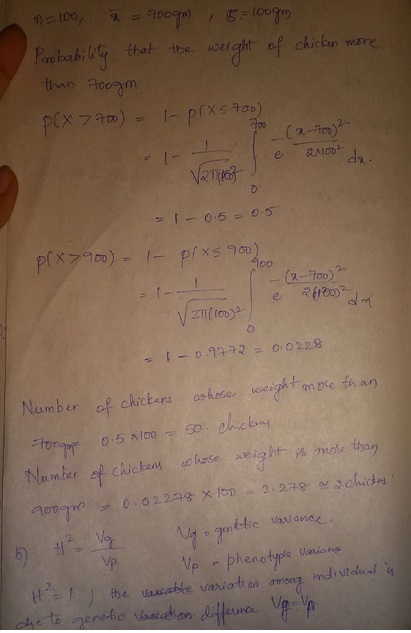 n=100, x̄ = 700gm, s=100gm
Probability that the weight of chicken more
than 700gm
P(X>700) = 1-P(X≤700)
= 1 - 1/√2π(100)² ∫₀⁷⁰⁰ e^-(x-700)²/2*100² dx.
= 1-0.5 = 0.5
P(X>900) = 1- P(X≤900)
= 1- 1/√2π(100)² ∫₀⁹⁰⁰ e^-(x-700)²/2(100)² dx
= 1-0.9772 = 0.0228
Number of chickens whose weight more than
700gm 0.5*100 = 50. chickens
Number of chickens whose weight is more than
900gm = 0.02278 × 100 = 2.278 ≈ 2 chickes
b) H² = Vg/Vp Vg = genetic variance.
Vp = phenotype variance
H²=1, the variation among individual is
due to genetic difference Vg=Vp